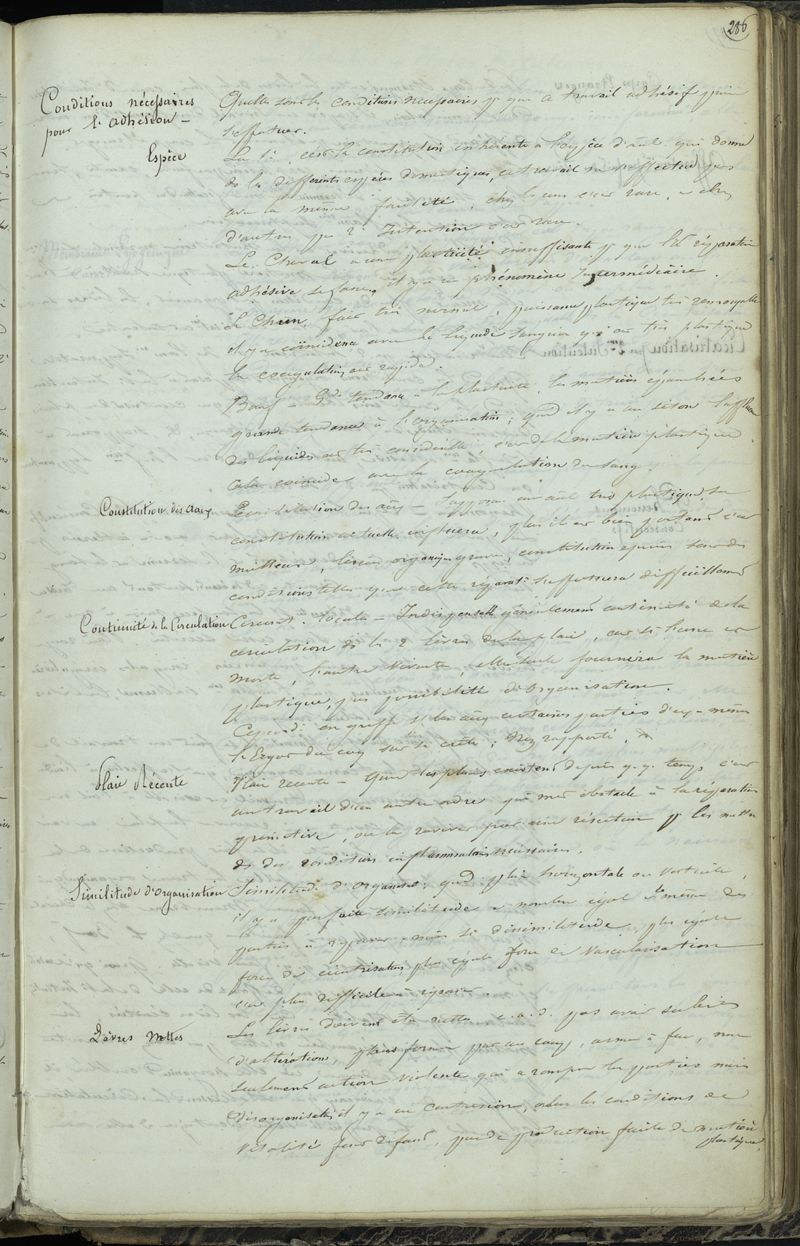 286
Conditions nécessaires
pour l'adhésion —
Quelles sont les conditions nécessaires pr que ce travail adhésif puisse
s'effectuer.
Espèce
La 1re, c'est la constitution inhérente à l'espèce d'aul. qui donne
ds les différentes espèces domestiques, ce travail ne s'effectue pas
avec la même facilité, chez les uns c'est rare, chez
d'autres par 2e Intention c'est rare.
Le Cheval a une plasticité insuffisante pr que la réparation
adhésive se fasse, il y a un phénomène Intermédiaire.
Le Chien, fait très normal, puissance plastique très remarquable
il y a coïncidence avec le liquide sanguin qui est très plastique
la coagulation est rapide.
Bœuf — Gde tendance à la plasticité, les matières épanchées
grande tendance à l'organisation; quand il y a un séton l'afflux
des liquides est très considérable, c'est de la matière plastique
cela coïncide avec la coagulation du sang.
Constitution des aux
Constitution des aux — Supposons un aul. très plastique, sa
constitution actuelle influera, plus il est bien portant c'est
meilleur, lésion organique grave, constitution épuisée sont des
conditions telles que cette réparatn s'effectuera difficilement
Continuité de la Circulation
Circonst. locales — Indispensable généralement continuité de la
circulation ds les 2 lèvres de la plaie, car si l'une est
morte, l'autre vivante, elle seule fournira la matière
plastique, pas possibilité d'organisation.
Cependt on greffe sr les aux certaines parties d'eux-mêmes
l'Ergot du coq sur la crête; Nez rapporté.
Plaie Récente
Plaie récente — Quand les plaies existent depuis q.q. temps c'est
un travail d'un autre ordre qui met obstacle à la réparation
primitive, on la ravive par une résection pr les mettre
ds des conditions inflammatoires nécessaires.
Similitude d'organisation
Similitude d'organisat; quand plaie horizontale ou verticale,
il y a parfaite similitude et nombre égal le même des
parties à réparer, mais si dissimilitude, plus égale
force de cicatrisation, plus égale force de Vascularisation
c'est plus difficile à réparer.
Lèvres nettes
Les lèvres doivent être nettes c.a.d. pas avoir subi
d'altérations, plaies formées par un coup, arme à feu, non
seulement action violente qui a rompu les parties mais
désorganisatn, il y a eu contusion, alors les conditions de
vitalité font défaut, pas de production facile de matière
plastique.